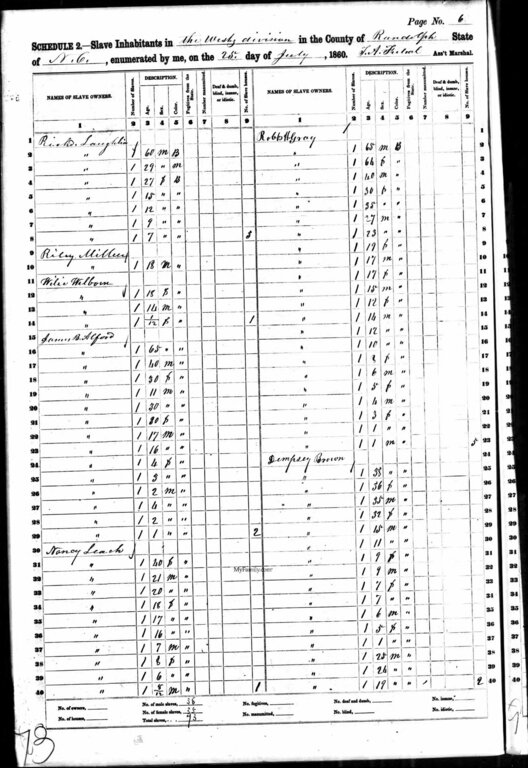 Page No. 6
SCHEDULE 2.—Slave Inhabitants in the West division in the County of Randolph State
of N.C., enumerated by me, on the 25 day of July, 1860. Ass't Marshal.
NAMES OF SLAVE OWNERS. Number of Slaves. DESCRIPTION. Age. Sex. Color. Fugitives from the State. Number manumitted. Deaf & dumb, blind, insane, or idiotic. No. of Slave houses. NAMES OF SLAVE OWNERS. Number of Slaves. DESCRIPTION. Age. Sex. Color. Fugitives from the State. Number manumitted. Deaf & dumb, blind, insane, or idiotic. No. of Slave houses.
1 2 3 4 5 6 7 8 9 1 2 3 4 5 6 7 8 9
1 Laughlin Robt H Gray 1
2 " 1 60 m B " 1 65 m B 2
3 " 1 29 " m " 1 64 f " 3
4 " 1 27 f B " 1 40 m " 4
5 " 1 15 " " " 1 30 f " 5
6 " 1 12 " " " 1 35 " " 6
7 " 1 9 " " " 1 27 m " 7
8 " 1 7 " " 5 " 1 23 " " 8
9 Riley Miller " 1 19 f " 9
10 " 1 18 m " " 1 17 m " 10
11 Wilie Welborn " 1 17 f " 11
12 " 1 18 f " " 1 15 m " 12
13 " 1 14 m " " 1 12 f " 13
14 " 1 /12 f " 1 " 1 14 m " 14
15 James B Alford " 1 12 " " 15
16 " 1 65 " " " 1 10 " " 16
17 " 1 40 m " " 1 8 f " 17
18 " 1 30 f " " 1 6 m " 18
19 " 1 11 m " " 1 5 f " 19
20 " 1 30 " " " 1 4 m " 20
21 " 1 20 f " " 1 3 f " 21
22 " 1 17 m " " 1 1 " " 22
23 " 1 16 " " " 1 1 m " 5 23
24 " 1 4 f " Dempsey Brown 24
25 " 1 3 " " " 1 38 " " 25
26 " 1 2 m " " 1 36 f " 26
27 " 1 4 " " " 1 35 m " 27
28 " 1 2 " " " 1 32 f " 28
29 " 1 1 " " 2 " 1 15 m " 29
30 Nancy Leach " 1 11 " " 30
31 " 1 40 f " " 1 9 f " 31
32 " 1 21 m " " 1 9 m " 32
33 " 1 20 " " " 1 7 f " 33
34 " 1 18 f " " 1 7 " " 34
35 " 1 17 " " " 1 6 m " 35
36 " 1 16 " " " 1 5 f " 36
37 " 1 7 m " " 1 1 " " 37
38 " 1 8 f " " 1 25 m " 38
39 " 1 6 " " " 1 24 " " 39
40 " 1 /12 m " 1 " 1 19 " " 2 40
MyFamily.com
No. of owners, No. of male slaves, 38 No. fugitives, No. deaf and dumb, No. insane,
No. of houses, No. of female slaves, 35 No. manumitted, No. blind, No. idiotic,
Total slaves, 73
73